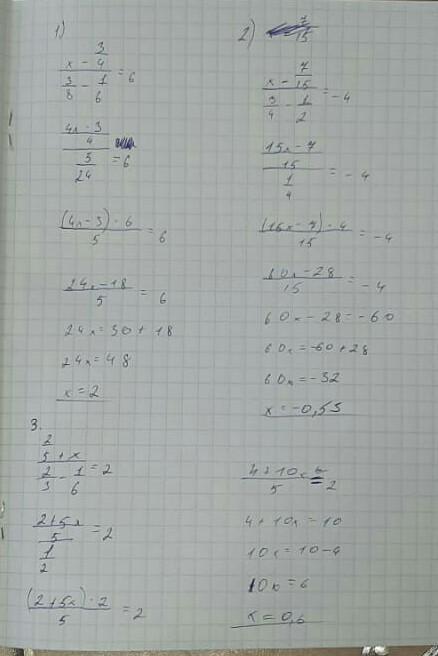 1)
3
x - 4
3 - 1 = 6
8 6
4x - 3
4
5 = 6
24
(4x - 3) · 6
5 = 6
24x - 18
5 = 6
24x = 30 + 18
24x = 48
x = 2
2)
7
15
7
x - 15
3 - 1 = -4
4 2
15x - 7
15 = -4
1
4
(15x - 7) · 4
15 = -4
60x - 28
15 = -4
60x - 28 = -60
60x = -60 + 28
60x = -32
x = -0,53
3.
2
5 + x
2 - 1 = 2
3 6
2 + 5x
5 = 2
1
2
(2 + 5x) · 2
5 = 2
4 + 10x
5 = 2
4 + 10x = 10
10x = 10 - 4
10x = 6
x = 0,6